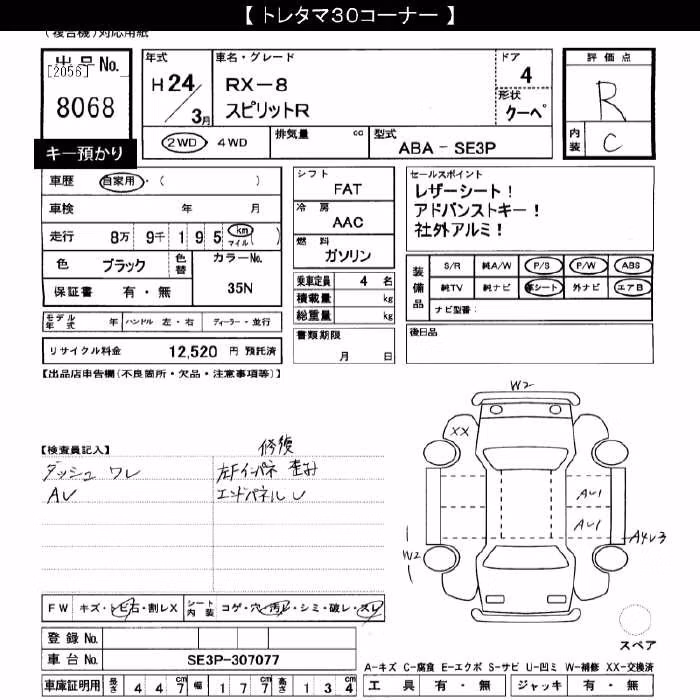 【 トレタマ30コーナー 】
(複合機)対応用紙
出品No.
[2056]
8068
キー預かり
年式
H 24 / 3月
車名・グレード
RX-8
スピリットR
ドア
4
形状
クーペ
評価点
R
内装 C
2WD ・ 4WD
排気量 cc
型式
ABA - SE3P
車歴 自家用・( )
車検 年 月
走行 8万 9千 1 9 5 km マイル ( )
色 ブラック 色替 カラーNo.
35N
保証書 有・無
シフト
FAT
冷房
AAC
燃料
ガソリン
乗車定員 4 名
積載量 kg
総重量 kg
書類期限
月 日
セールスポイント
レザーシート!
アドバンストキー!
社外アルミ!
装備品
S/R 純A/W P/S P/W ABS
純TV 純ナビ 革シート 外ナビ エアB
ナビ型番:
後日品
モデル年式 年 ハンドル 左・右 ディーラー・並行
リサイクル料金 12,520 円 預託済
【出品店申告欄(不良箇所・欠品・注意事項等)】
W2
XX
【検査員記入】 修復
ダッシュ ワレ 左Fインパネ 歪み
AU エンドパネル U
AU1
AU1
A4U3
W2
FW キズ・トビ石・割レX シート内装 コゲ・穴・汚レ・シミ・破レ・スレ
登録No.
車台No. SE3P-307077
車庫証明用 長さ 4 4 7 幅 1 7 7 高さ 1 3 4
スペア
A-キズ C-腐食 E-エクボ S-サビ U-凹ミ W-補修 XX-交換済
工具 有・無 ジャッキ 有・無